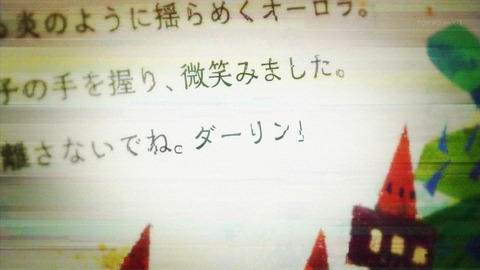 炎のように揺らめくオーロラ。
子の手を握り、微笑みました。
離さないでね。ダーリン!